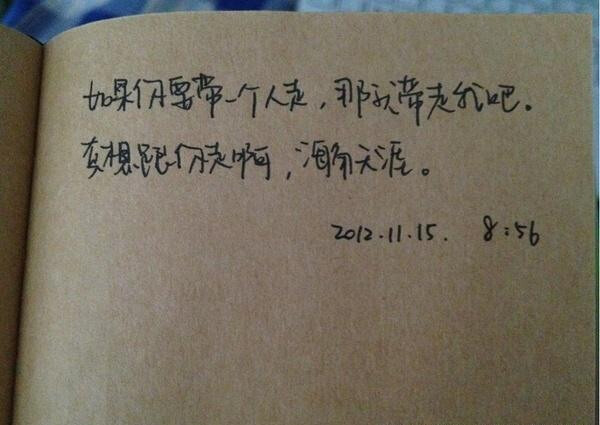 如果你要带一个人走，那就带走我吧。
真想跟你走啊，海角天涯。
2012.11.15. 8:56